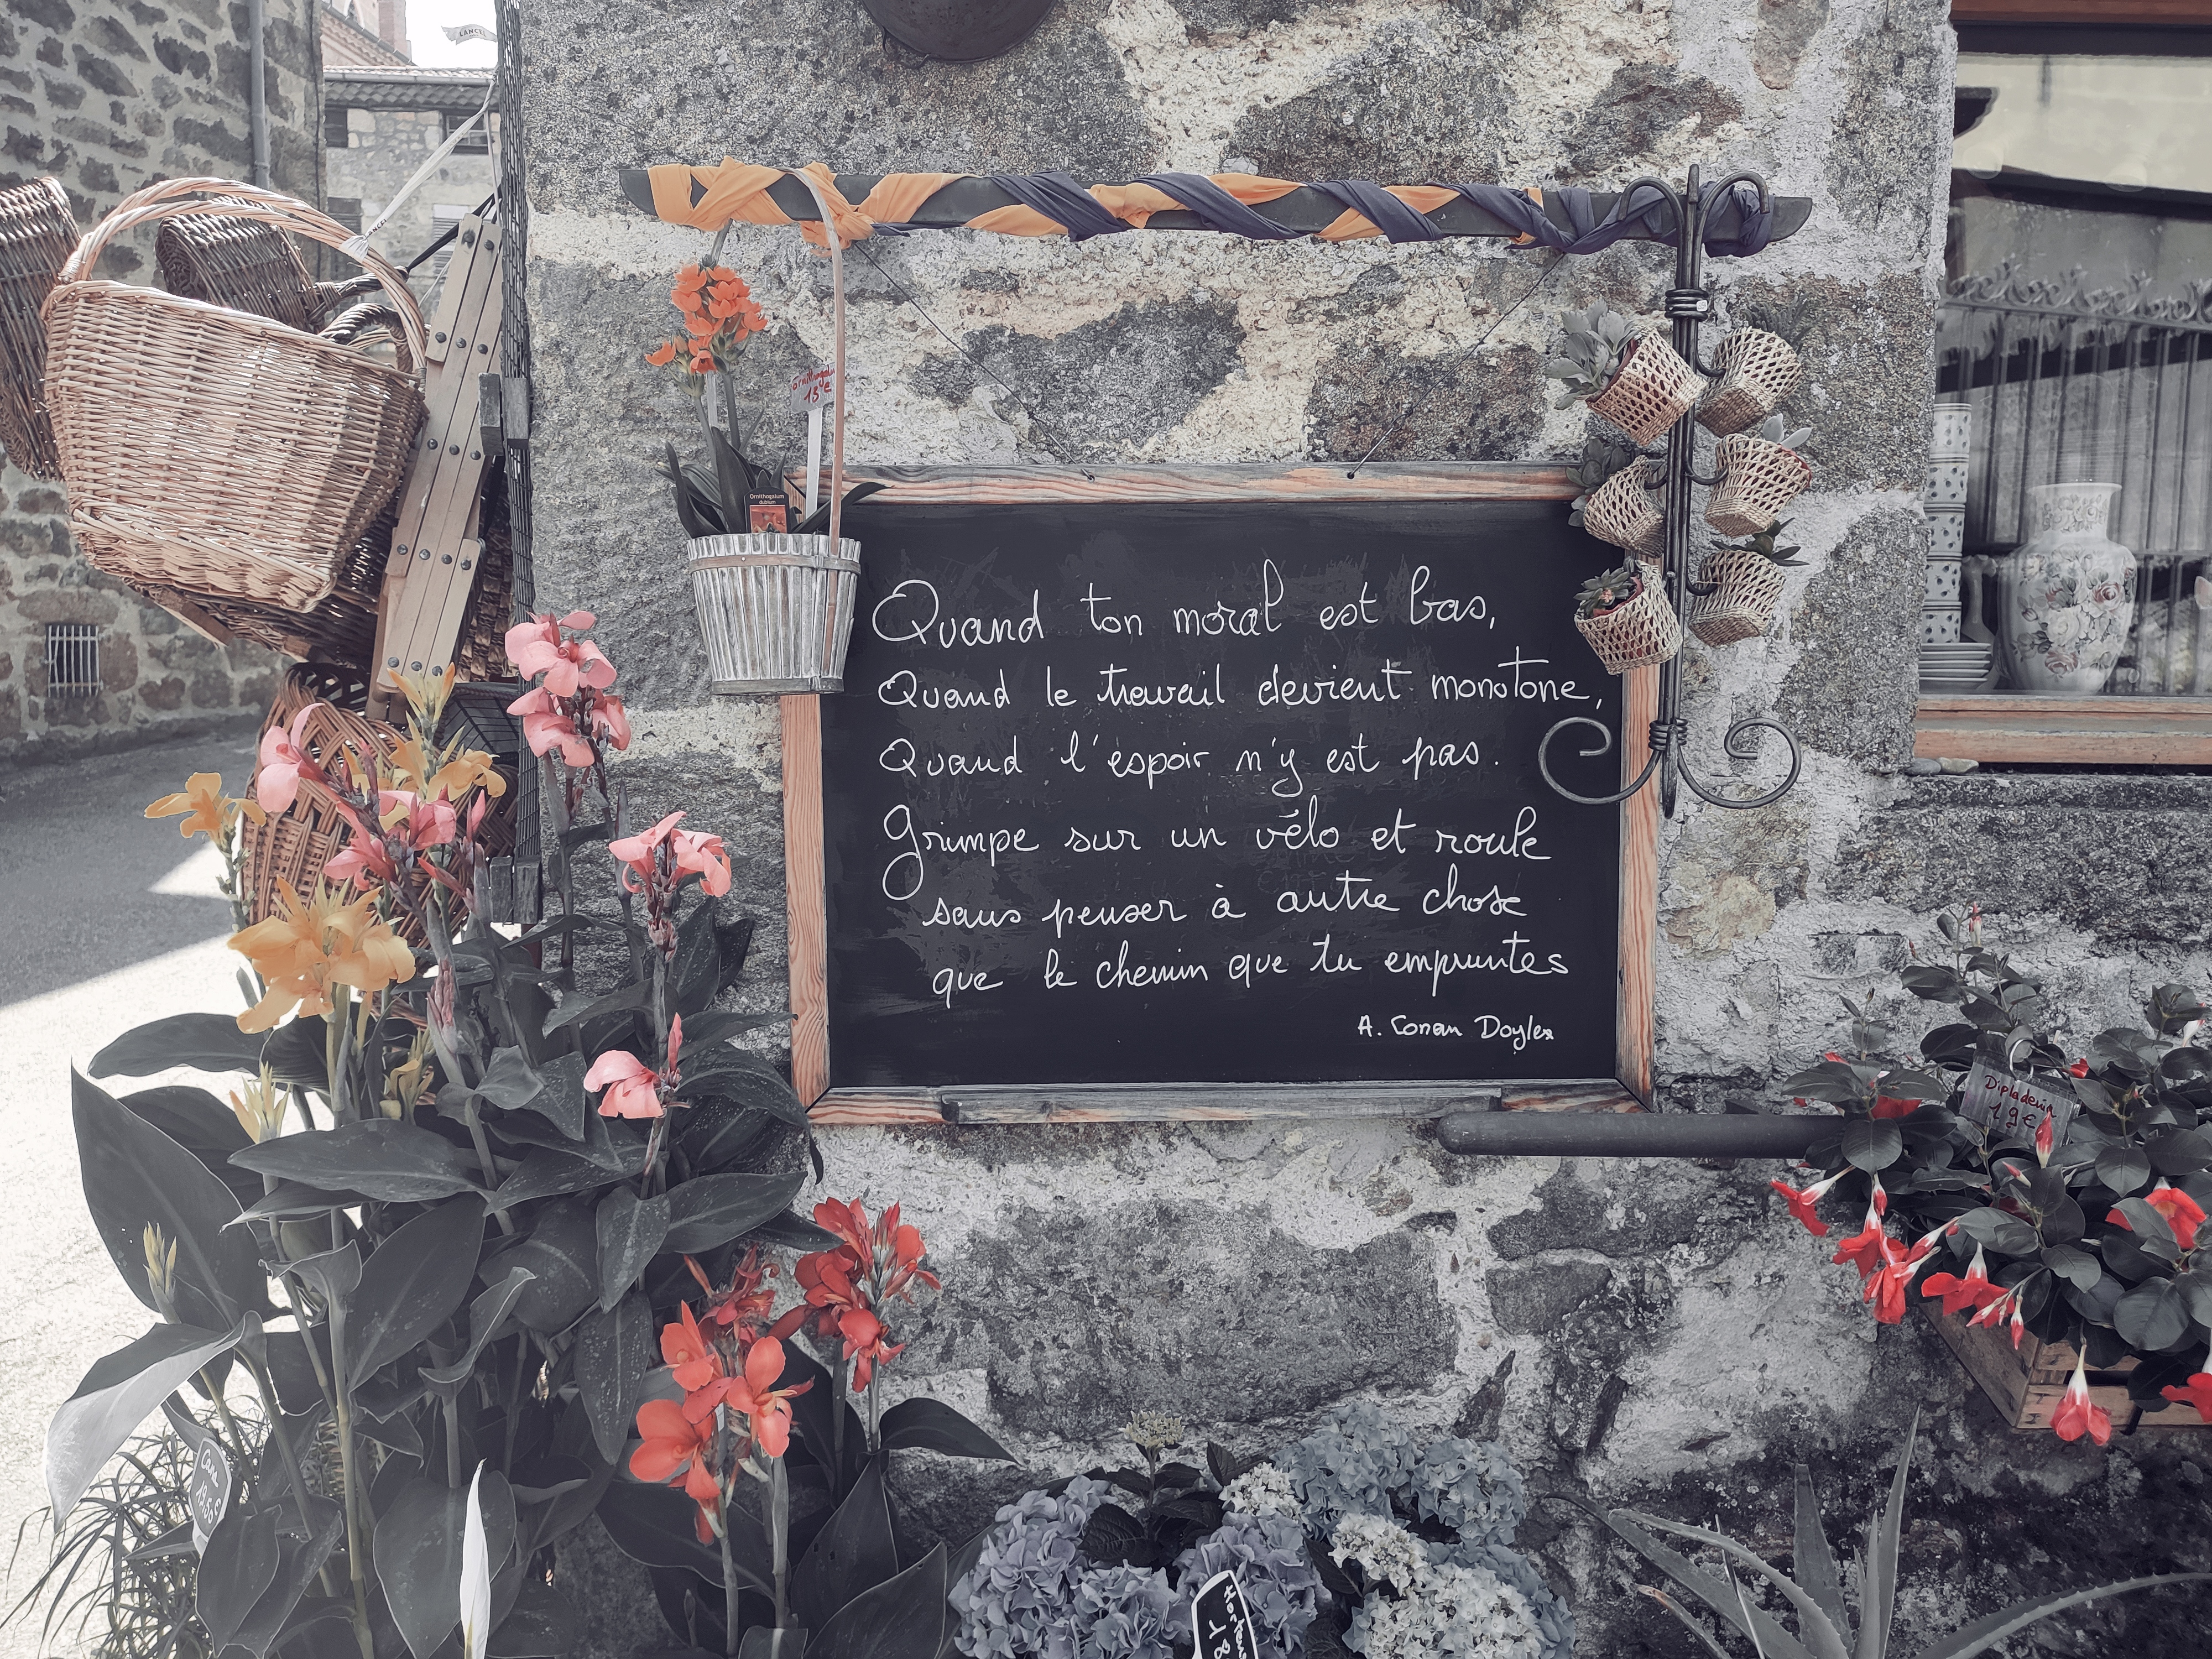 LANCEL
LANCEL
ornithogalu
15€
Ornithogalum
dubium
Quand ton moral est bas,
Quand le travail devient monotone,
Quand l'espoir n'y est pas.
Grimpe sur un vélo et roule
sans penser à autre chose
que le chemin que tu empruntes
A. Conan Doyle
Dipladenia
19€